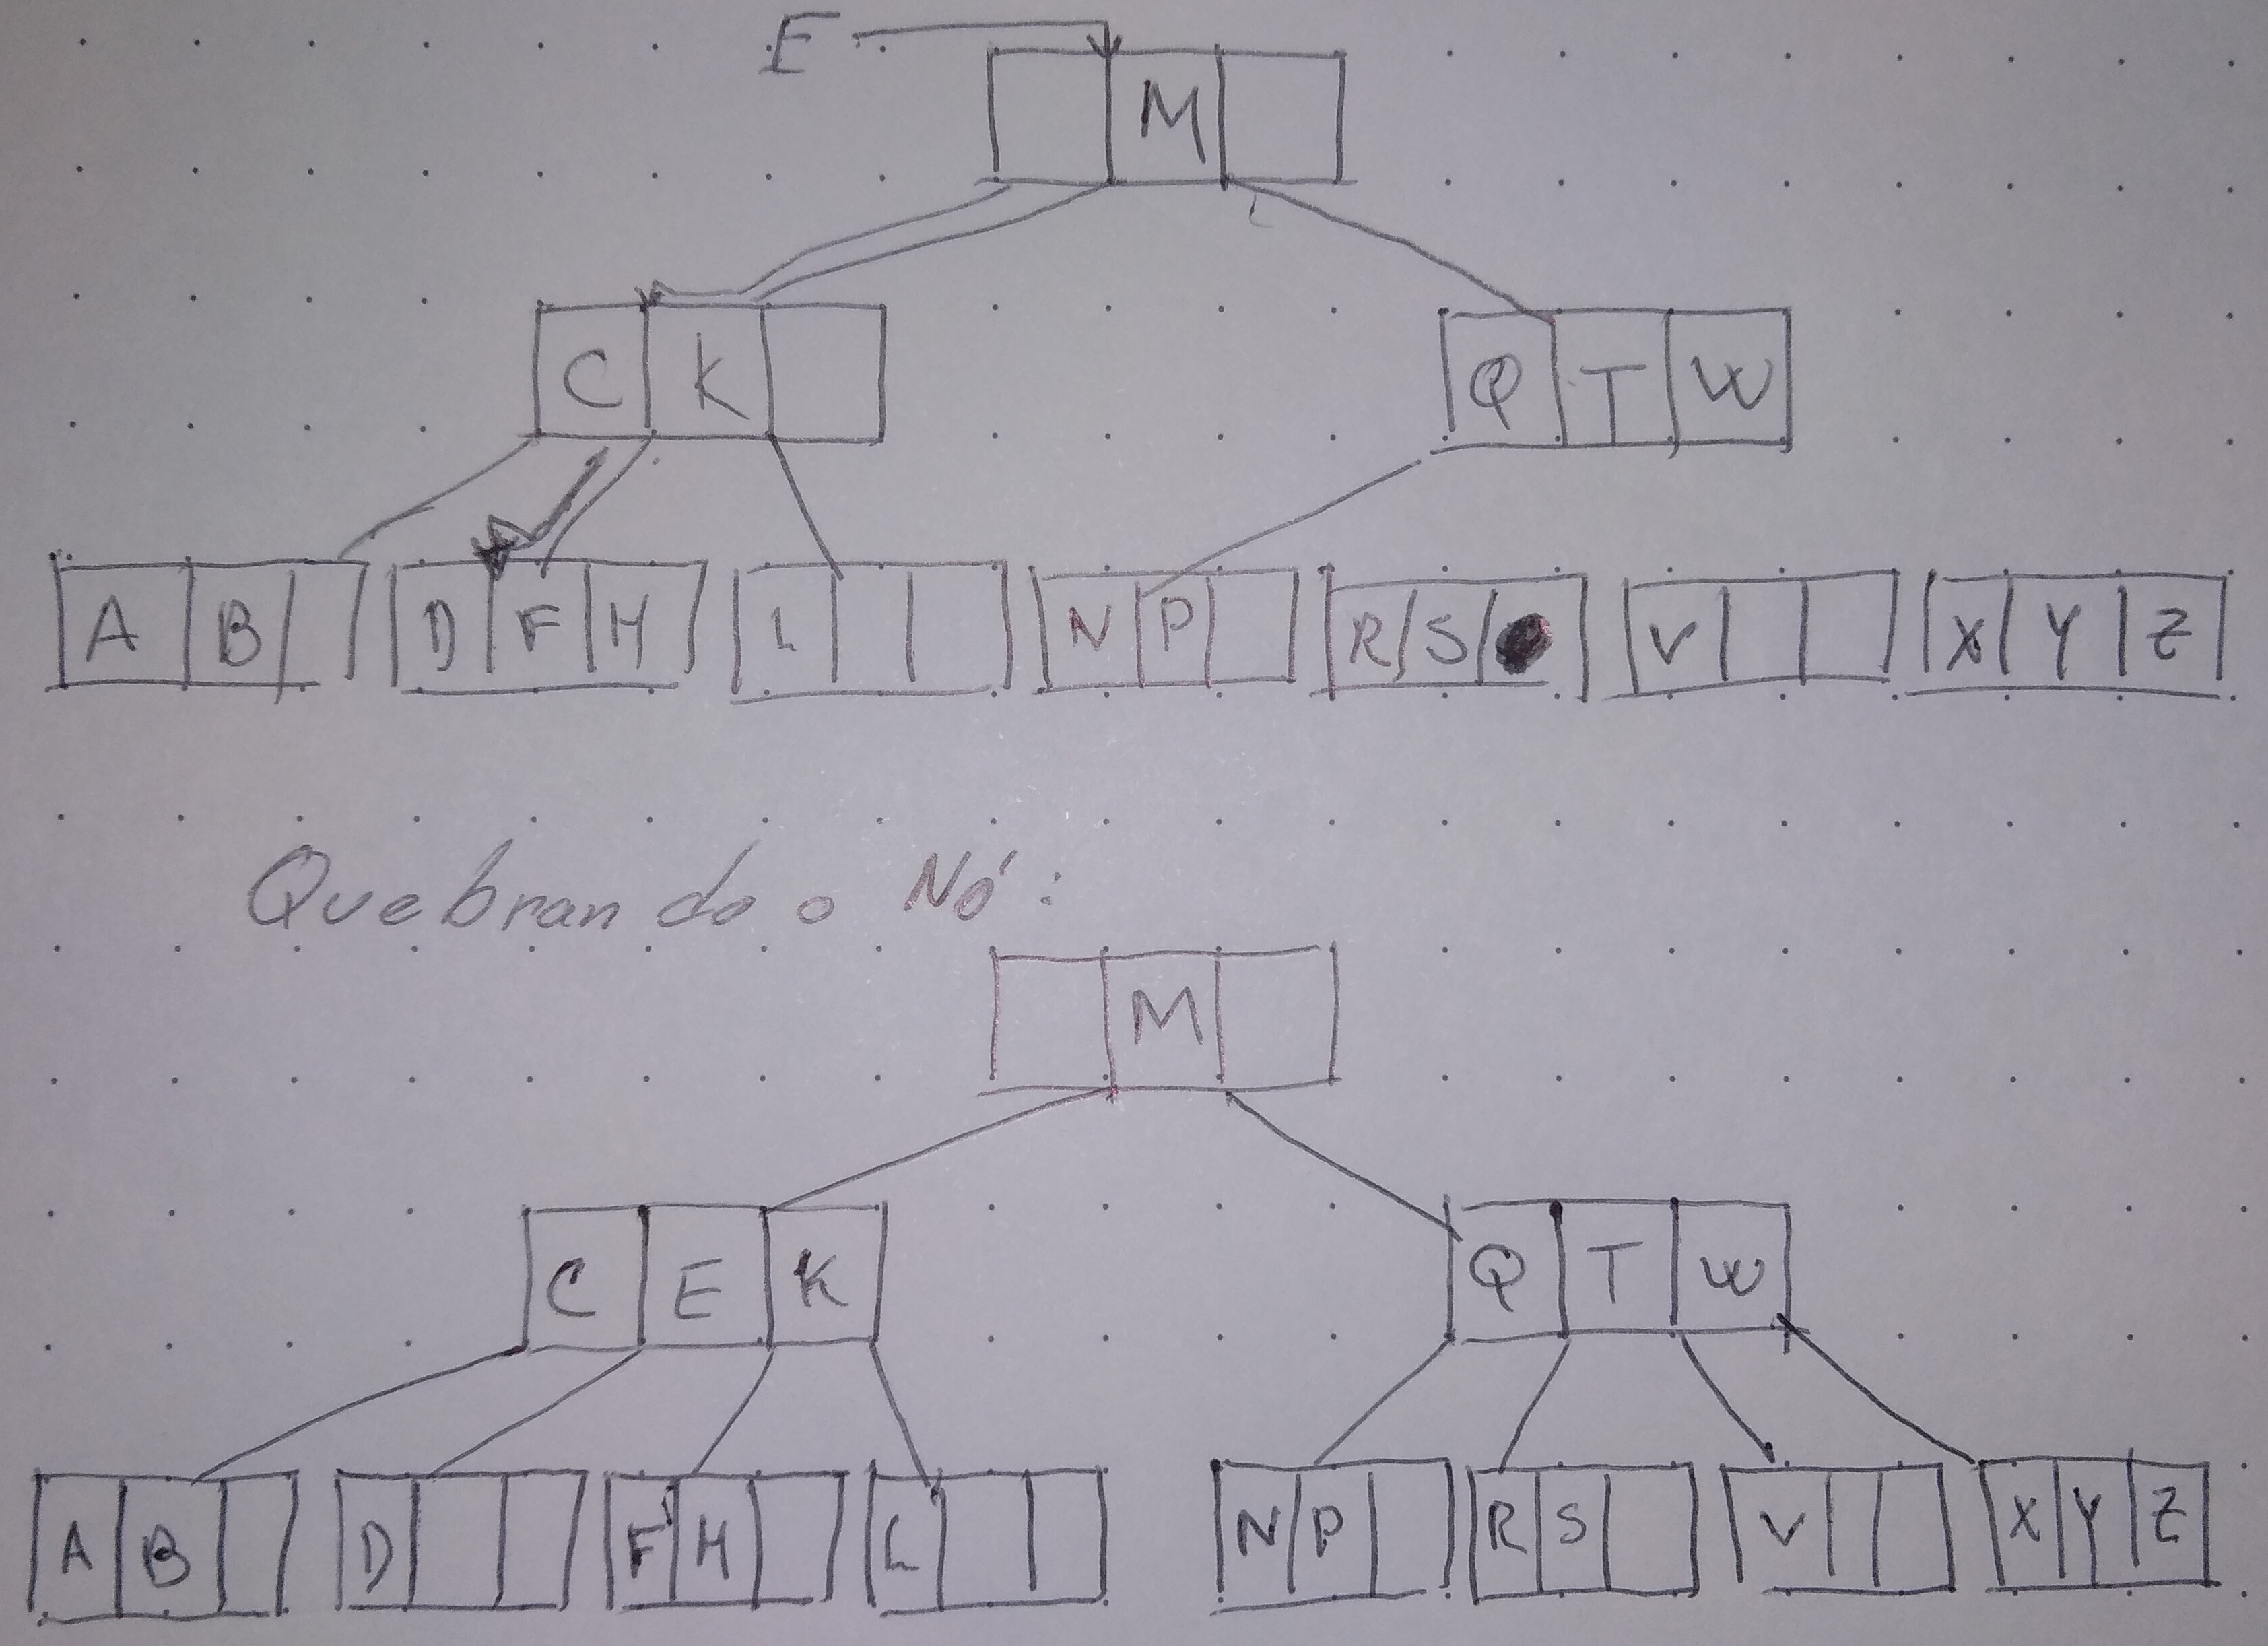 E
M
C K Q T W
A B D F H L N P R S V X Y Z
Quebrando o Nó:
M
C E K Q T W
A B D F H L N P R S V X Y Z